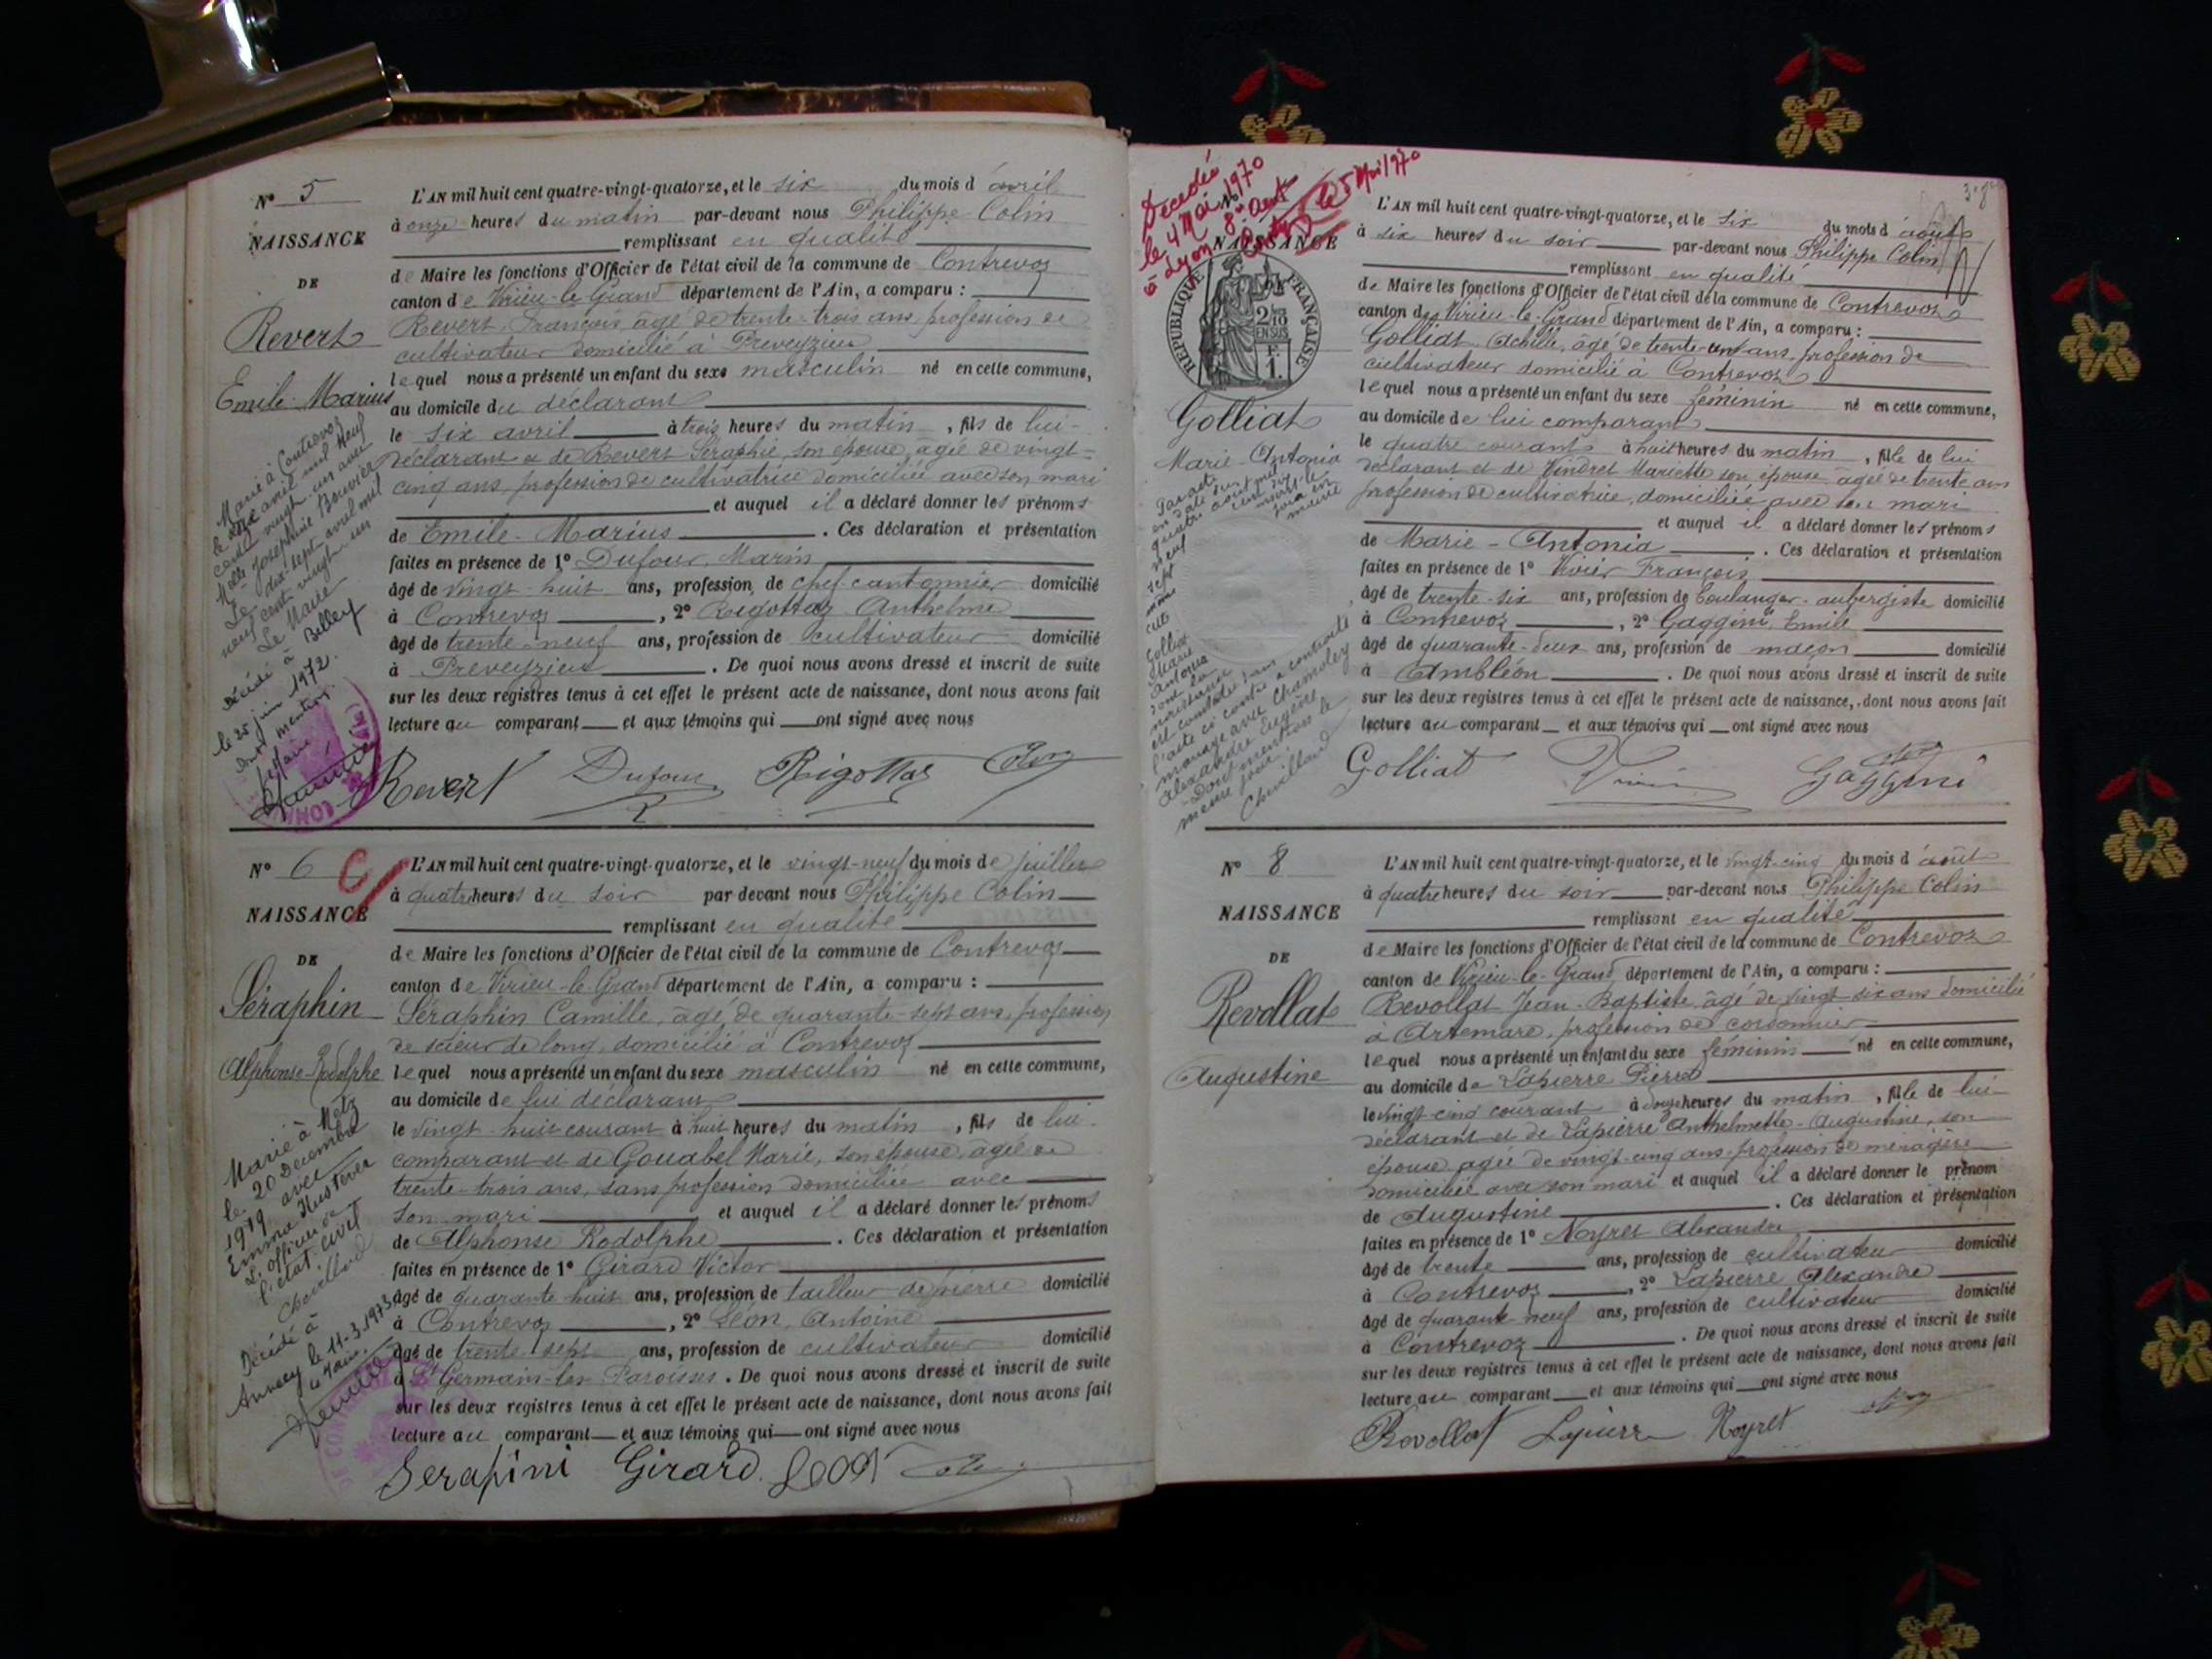 N° 5
NAISSANCE
DE
Revert
Emile Marius
L'AN mil huit cent quatre-vingt-quatorze, et le six du mois d'avril
à onze heures du matin par-devant nous Philippe Colin
remplissant en qualité
de Maire les fonctions d'Officier de l'état civil de la commune de Contrevoz
canton de Virieu-le-Grand département de l'Ain, a comparu :
Revert François âgé de trente-trois ans profession de
cultivateur domicilié à Preveyzieu
lequel nous a présenté un enfant du sexe masculin né en cette commune,
au domicile du déclarant
le six avril à trois heures du matin, fils de lui-
déclarant & de Revert Séraphie, son épouse, âgée de vingt-
cinq ans, profession de cultivatrice domiciliée avec son mari
et auquel il a déclaré donner les prénoms
de Emile-Marius. Ces déclaration et présentation
faites en présence de 1° Dufour, Marin
âgé de vingt-huit ans, profession de chef-cantonnier domicilié
à Contrevoz, 2° Rigottaz Anthelme
âgé de trente-neuf ans, profession de cultivateur domicilié
à Preveyzieu. De quoi nous avons dressé et inscrit de suite
sur les deux registres tenus à cet effet le présent acte de naissance, dont nous avons fait
lecture au comparant et aux témoins qui ont signé avec nous
Revert Dufour Rigottaz Colin
Marié à Contrevoz
le avril mil neuf
cent vingt un avec
Melle Joséphine Bouvier
Le dix-sept avril mil
neuf cent vingt un
Le Maire
Décédé à Belley
le 25 juin 1972.
Dont mention.
Le Maire
N° 6
NAISSANCE
DE
Séraphin
Alphonse-Rodolphe
L'AN mil huit cent quatre-vingt-quatorze, et le vingt-neuf du mois de juillet
à quatre heures du soir par devant nous Philippe Colin
remplissant en qualité
de Maire les fonctions d'Officier de l'état civil de la commune de Contrevoz
canton de Virieu-le-Grand département de l'Ain, a comparu :
Séraphin Camille, âgé de quarante-sept ans, profession
de scieur de long, domicilié à Contrevoz
lequel nous a présenté un enfant du sexe masculin né en cette commune,
au domicile de lui déclarant
le vingt-huit courant à huit heures du matin, fils de lui-
comparant et de Gouabel Marie, son épouse, âgée de
trente-trois ans, sans profession domiciliée avec
son mari et auquel il a déclaré donner les prénoms
de Alphonse Rodolphe. Ces déclaration et présentation
faites en présence de 1° Girard Victor
âgé de quarante-huit ans, profession de tailleur de pierre domicilié
à Contrevoz, 2° Léon, Antoine
âgé de trente-sept ans, profession de cultivateur domicilié
à St Germain-les-Paroisses. De quoi nous avons dressé et inscrit de suite
sur les deux registres tenus à cet effet le présent acte de naissance, dont nous avons fait
lecture au comparant et aux témoins qui ont signé avec nous
Serafini Girard Léon
Marié à Metz
le 20 Décembre
1919 avec
Emma
L'officier de
l'état civil
Chevillard
Décédé à
Annecy le 11-3-1973
Le Maire.
Décédée
le 4 Mai 1970
à Lyon 8e
NAISSANCE
RÉPUBLIQUE FRANÇAISE
2/10 EN SUS
F. 1.
Golliat
Marie-Antonia
L'AN mil huit cent quatre-vingt-quatorze, et le six du mois d'août
à six heures du soir par-devant nous Philippe Colin
remplissant en qualité
de Maire les fonctions d'Officier de l'état civil de la commune de Contrevoz
canton de Virieu-le-Grand département de l'Ain, a comparu :
Golliat Achille, âgé de trente-un ans, profession de
cultivateur domicilié à Contrevoz
lequel nous a présenté un enfant du sexe féminin né en cette commune,
au domicile de lui comparant
le quatre courant à huit heures du matin, fille de lui
déclarant et de Vindret Mariette son épouse âgée de trente ans
profession de cultivatrice, domiciliée avec son mari
et auquel il a déclaré donner les prénoms
de Marie-Antonia. Ces déclaration et présentation
faites en présence de 1° Vivier François
âgé de trente-six ans, profession de boulanger-aubergiste domicilié
à Contrevoz, 2° Gaggini, Emile
âgé de quarante-deux ans, profession de maçon domicilié
à Ambléon. De quoi nous avons dressé et inscrit de suite
sur les deux registres tenus à cet effet le présent acte de naissance, dont nous avons fait
lecture au comparant et aux témoins qui ont signé avec nous
Golliat Vivier Gaggini
Golliat
Marie
Antonia
dont la
naissance
est constatée dans
l'acte ci-contre a contracté
mariage avec Chamoley
Alexandre Eugène
Dont mention le
même jour
Chevillard
N° 8
NAISSANCE
DE
Revollat
Augustine
L'AN mil huit cent quatre-vingt-quatorze, et le vingt-cinq du mois d'août
à quatre heures du soir par-devant nous Philippe Colin
remplissant en qualité
de Maire les fonctions d'Officier de l'état civil de la commune de Contrevoz
canton de Virieu-le-Grand département de l'Ain, a comparu :
Revollat Jean-Baptiste, âgé de vingt-six ans domicilié
à Artemare, profession de cordonnier
lequel nous a présenté un enfant du sexe féminin né en cette commune,
au domicile de Lapierre Pierre
le vingt-cinq courant à douze heures du matin, fille de lui-
déclarant et de Lapierre Anthelmette-Augustine, son
épouse âgée de vingt-cinq ans profession de ménagère
domiciliée avec son mari et auquel il a déclaré donner le prénom
de Augustine. Ces déclaration et présentation
faites en présence de 1° Noyret Alexandre
âgé de trente ans, profession de cultivateur domicilié
à Contrevoz, 2° Lapierre Alexandre
âgé de quarante-neuf ans, profession de cultivateur domicilié
à Contrevoz. De quoi nous avons dressé et inscrit de suite
sur les deux registres tenus à cet effet le présent acte de naissance, dont nous avons fait
lecture au comparant et aux témoins qui ont signé avec nous
Revollat Lapierre Noyret